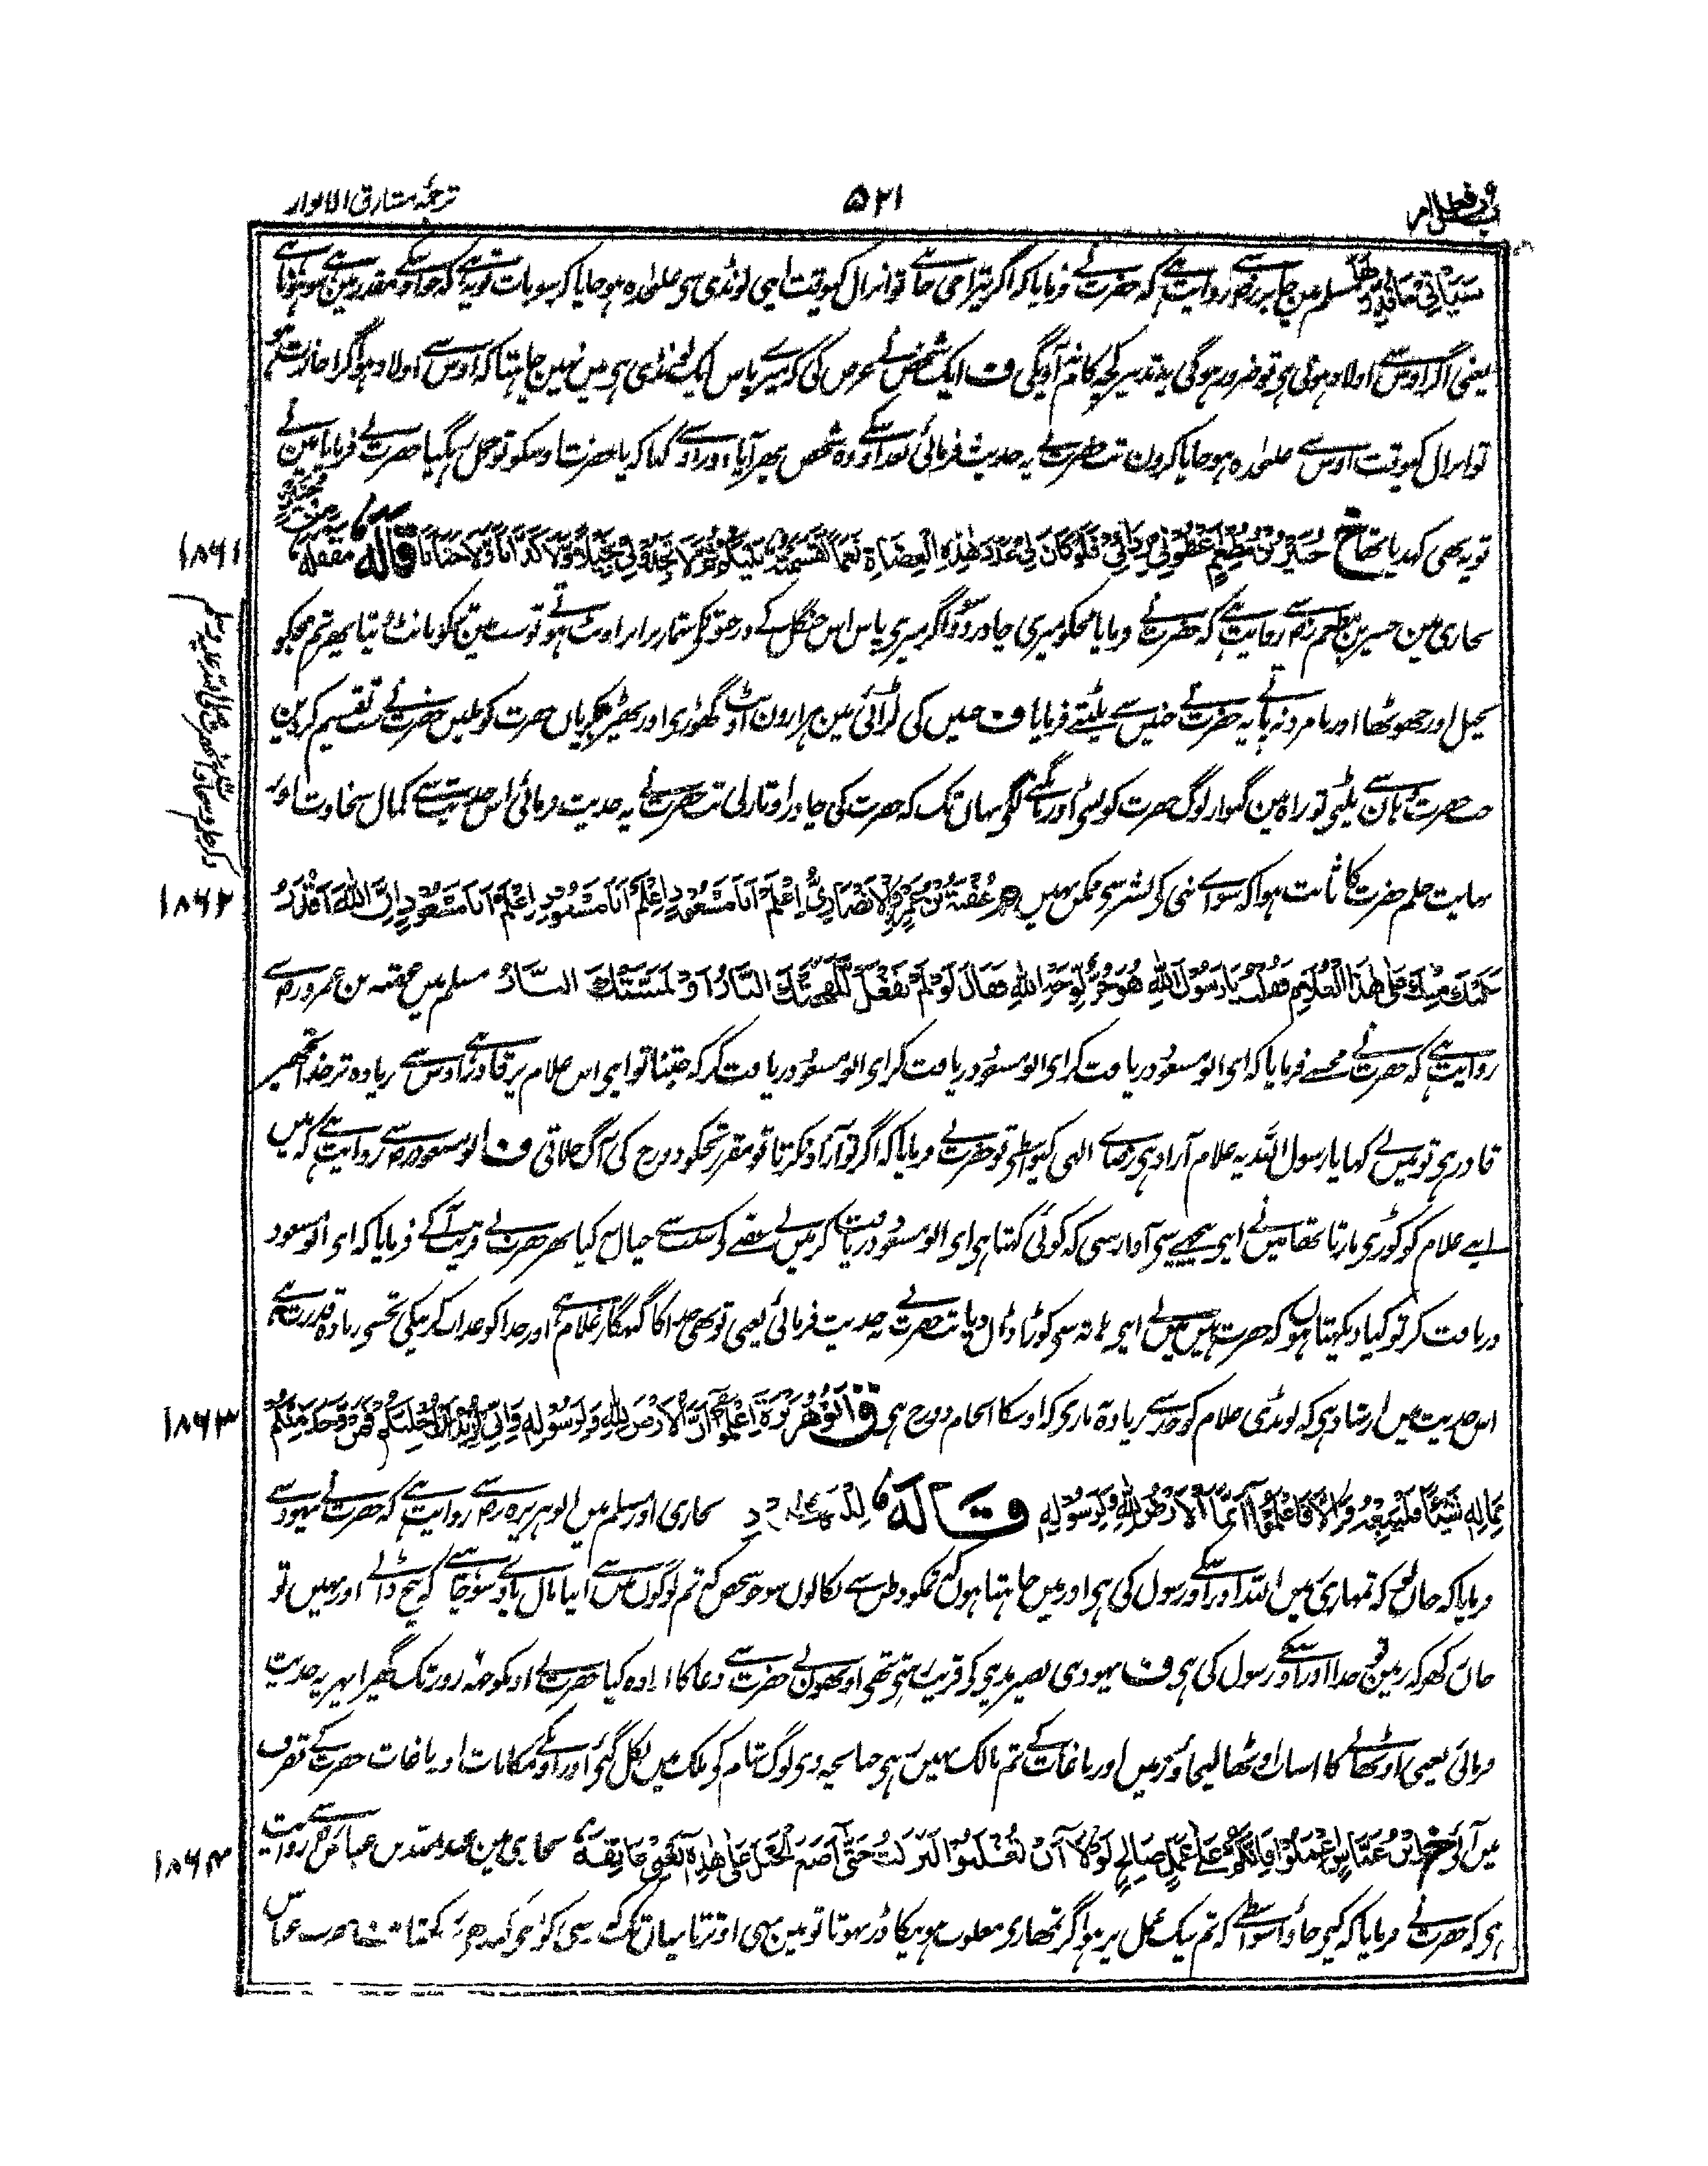 باب فعل امر
۵۲۱
ترجمہ مشارق الانوار
سَيَأْتِيهَا مَا قُدِّرَ لَهَا مسلم مین جابر رض سے روایت ہے کہ حضرت نے فرمایا کہ اگر تیرا جی چاہے تو انزال کیوقت اپنی لونڈی سے علحدہ ہو جایا کر سو بات تو یہ ہے کہ جو اوسکے مقدر مین ہے سو ہوتا ہے
یعنی اگر اوس سے اولاد ہونی ہے تو ضرور ہوگی یہ تدبیر کچھ کام نہ آویگی ف ایک شخص نے عرض کی کہ میرے پاس ایک لونڈی ہے مین نہین چاہتا کہ اوس سے اولاد ہو اگر اجازت
تو انزال کیوقت اوس سے علحدہ ہو جایا کرون تب حضرت نے یہ حدیث فرمائی بعد اوسکے وہ شخص پھر آیا اور اوسنے کہا کہ یا حضرت اوسکو تو حمل رہگیا حضرت نے فرمایا مین نے
تو یہ بھی کہدیا تھا خ جُبَيْرُ بْنُ مُطْعِمٍ أَعْطُونِي رِدَائِي فَلَوْ كَانَ لِي عَدَدَ هٰذِهِ الْعِضَاهِ نَعَمًا لَقَسَمْتُهُ بَيْنَكُمْ ثُمَّ لَا تَجِدُونِي بَخِيلًا وَلَا كَذَّابًا وَلَا جَبَانًا قَالَهُ مَقْفَلَهُ
۱۸۶۱
بخاری مین جبیر بن مطعم رض سے روایت ہے کہ حضرت نے فرمایا مجکو میری چادر دو اگر میری پاس اس جنگل کے درختوں کی شمار برابر اونٹ ہوتے تو سب مین تمکو بانٹ دیتا پھر تم مجکو
بخیل اور جھوٹھا اور نامرد نہ پاتے یہ حضرت نے حنین سے پلٹتے فرمایا ف حنین کی لڑائی مین ہزارون اونٹ گھوڑی اور بھیڑ بکریاں حضرت کو ملیں حضرت نے سب تقسیم کر دین
جب حضرت وہان سے پلٹے تو راہ مین گنوار لوگ حضرت کو لپٹے اور مانگنے لگے یہاں تک کہ حضرت کی چادر اوتار لی تب حضرت نے یہ حدیث فرمائی اس حدیث سے کمال سخاوت اور
نہایت حلم حضرت کا ثابت ہوا کہ سوای نبی کے بشر سے ممکن نہیں م عُقْبَةُ بْنُ عَمْرٍو الْأَنْصَارِيُّ اِعْلَمْ أَبَا مَسْعُودٍ اِعْلَمْ أَبَا مَسْعُودٍ اِعْلَمْ أَبَا مَسْعُودٍ إِنَّ اللّٰهَ أَقْدَرُ
۱۸۶۲
عَلَيْكَ مِنْكَ عَلَى هٰذَا الْغُلَامِ فَقُلْتُ يَا رَسُولَ اللّٰهِ هُوَ حُرٌّ لِوَجْهِ اللّٰهِ فَقَالَ لَوْ لَمْ تَفْعَلْ لَلَفَحَتْكَ النَّارُ أَوْ لَمَسَّتْكَ النَّارُ مسلم میں عقبہ بن عمرو رض سے
روایت ہے کہ حضرت نے مجھسے فرمایا کہ ای ابو مسعود دریافت کر ای ابو مسعود دریافت کر ای ابو مسعود دریافت کر کہ جتنا تو ای اس غلام پر قادر ہے اوس سے زیادہ تر خدا تجھپر
قادر ہے تو میں نے کہا یا رسول اللہ یہ غلام آزاد ہے رضاے الہی کیواسطے تو حضرت نے فرمایا کہ اگر تو آزاد نکرتا تو مقرر تجکو دوزخ کی آگ جلاتی ف ابو مسعود رض سے روایت ہے کہ میں
اپنے غلام کو کوڑی مارتا تھا میں نے اپنی پیچھے سے آواز سنی کہ کوئی کہتا ہے ای ابو مسعود دریافت کر میں نے غصے کے سبب سے خیال نہ کیا پھر حضرت نے قریب آکے فرمایا کہ ای ابو مسعود
دریافت کر تو کیا دیکھتا ہوں کہ حضرت ہیں میں نے اپنی ہاتھ سے کوڑا ڈال دیا تب حضرت نے یہ حدیث فرمائی یعنی تو بھی خدا کا گنہگار غلام ہے اور خدا کو عذاب کرنیکی تجسے زیادہ قدرت ہے
اس حدیث میں ارشاد ہے کہ لونڈی غلام کو حد سے زیادہ نہ مارے کہ اوسکا انجام دوزخ ہے ق أَبُو هُرَيْرَةَ اِعْلَمُوا أَنَّ الْأَرْضَ لِلّٰهِ وَلِرَسُولِهِ وَإِنِّي أُرِيدُ أَنْ أُجْلِيَكُمْ فَمَنْ وَجَدَ مِنْكُمْ
۱۸۶۳
بِمَالِهِ شَيْئًا فَلْيَبِعْهُ وَإِلَّا فَاعْلَمُوا أَنَّمَا الْأَرْضُ لِلّٰهِ وَلِرَسُولِهِ قَالَهُ لِلْيَهُودِ بخاری اور مسلم میں ابو ہریرہ رض سے روایت ہے کہ حضرت نے یہود سے
فرمایا کہ جان لو کہ تمہاری زمین اللہ اور اوسکے رسول کی ہے اور میں چاہتا ہوں کہ تمکو وطن سے نکالوں سو جو شخص کہ تم لوگوں میں سے اپنا مال پاوے تو چاہیے کہ بیچ ڈالے اور نہیں تو
جان رکھو کہ زمین تو خدا اور اوسکے رسول کی ہے ف یہودی بنی نضیر مدینے کے قریب رہتے تھے اونھوں نے حضرت سے دغا کا ارادہ کیا حضرت نے اونکو چھہ روز تک گھیرا پھر یہ حدیث
فرمائی یعنی اوٹھانے کا اسباب اوٹھا لیجاؤ زمین اور باغات کے تم مالک نہیں رہے چنانچہ وی لوگ شام کے ملک میں نکل گئے اور اونکے مکانات اور باغات حضرت کے تصرف
میں آئے خ اِبْنُ عَبَّاسٍ اِعْمَلُوا فَإِنَّكُمْ عَلَى عَمَلٍ صَالِحٍ لَوْلَا أَنْ تُغْلَبُوا لَنَزَلْتُ حَتَّى أَضَعَ الْحَبْلَ عَلَى هٰذِهِ يَعْنِي عَاتِقَهُ بخاری مین عبداللہ بن عباس رض سے روایت
۱۸۶۴
ہے کہ حضرت نے فرمایا کہ کیے جاؤ اسواسطے کہ تم نیک عمل پر ہو اگر تمھاری مغلوب ہونیکا ڈر نہوتا تو مین بھی اوترتا یہاں تک کہ رسی کو